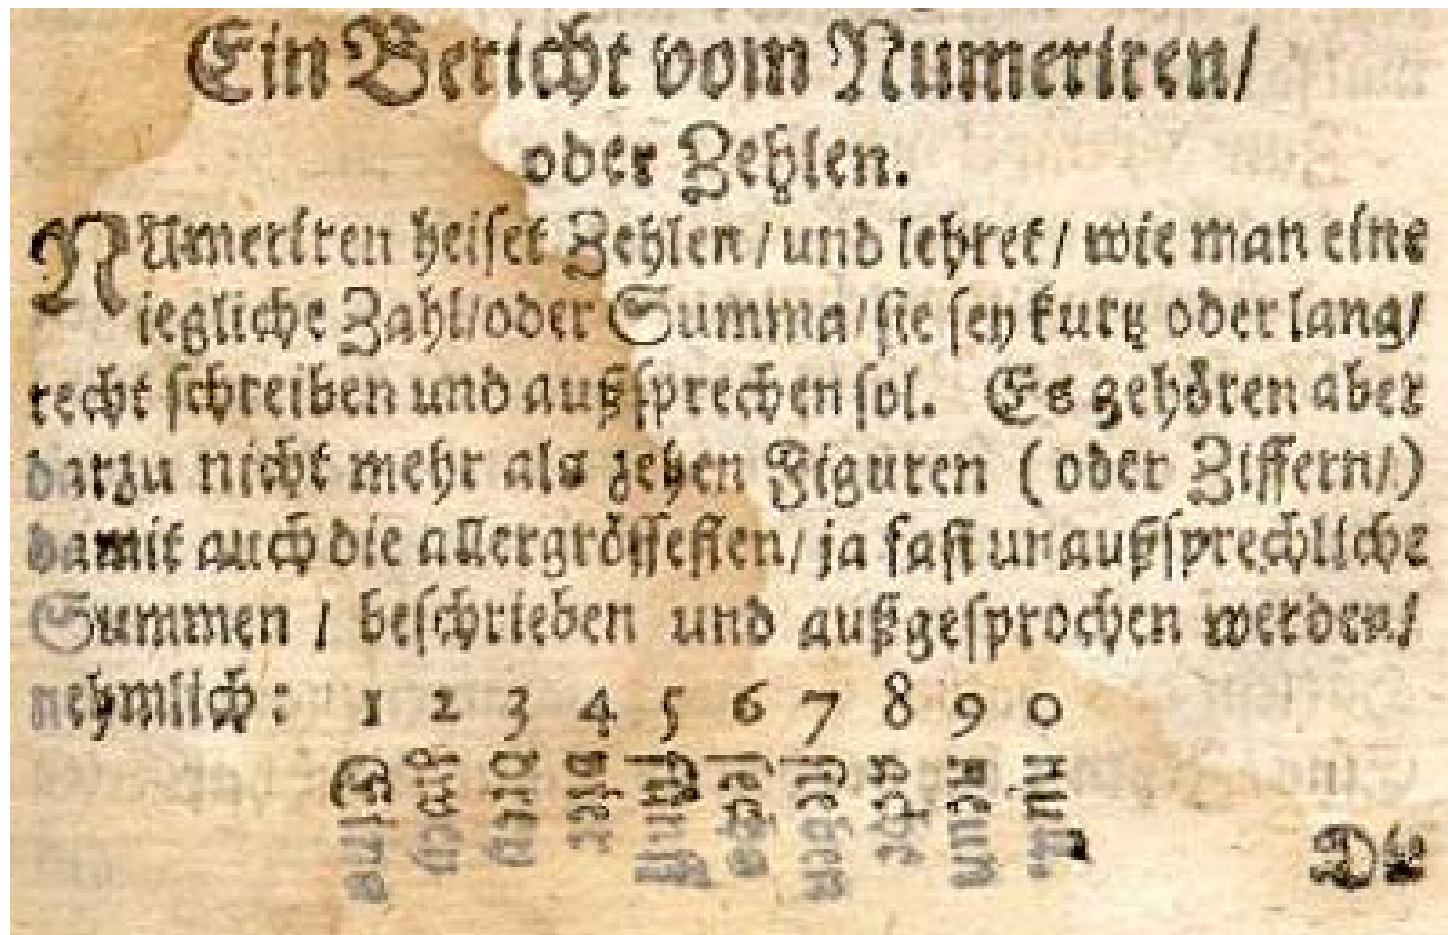 Ein Bericht vom Numeriren/
oder Zehlen.
NUmeriren heiset Zehlen/und lehret/ wie man eine
iegliche Zahl/oder Summa/sie sey kurtz oder lang/
recht schreiben und außsprechen sol. Es gehören aber
darzu nicht mehr als zehen Figuren (oder Ziffern/)
damit auch die allergrössesten/ja fast unaußsprechliche
Summen / beschrieben und außgesprochen werden/
nehmlich: 1 2 3 4 5 6 7 8 9 0
Eins zwey drey vier fünff sechs sieben acht neun null